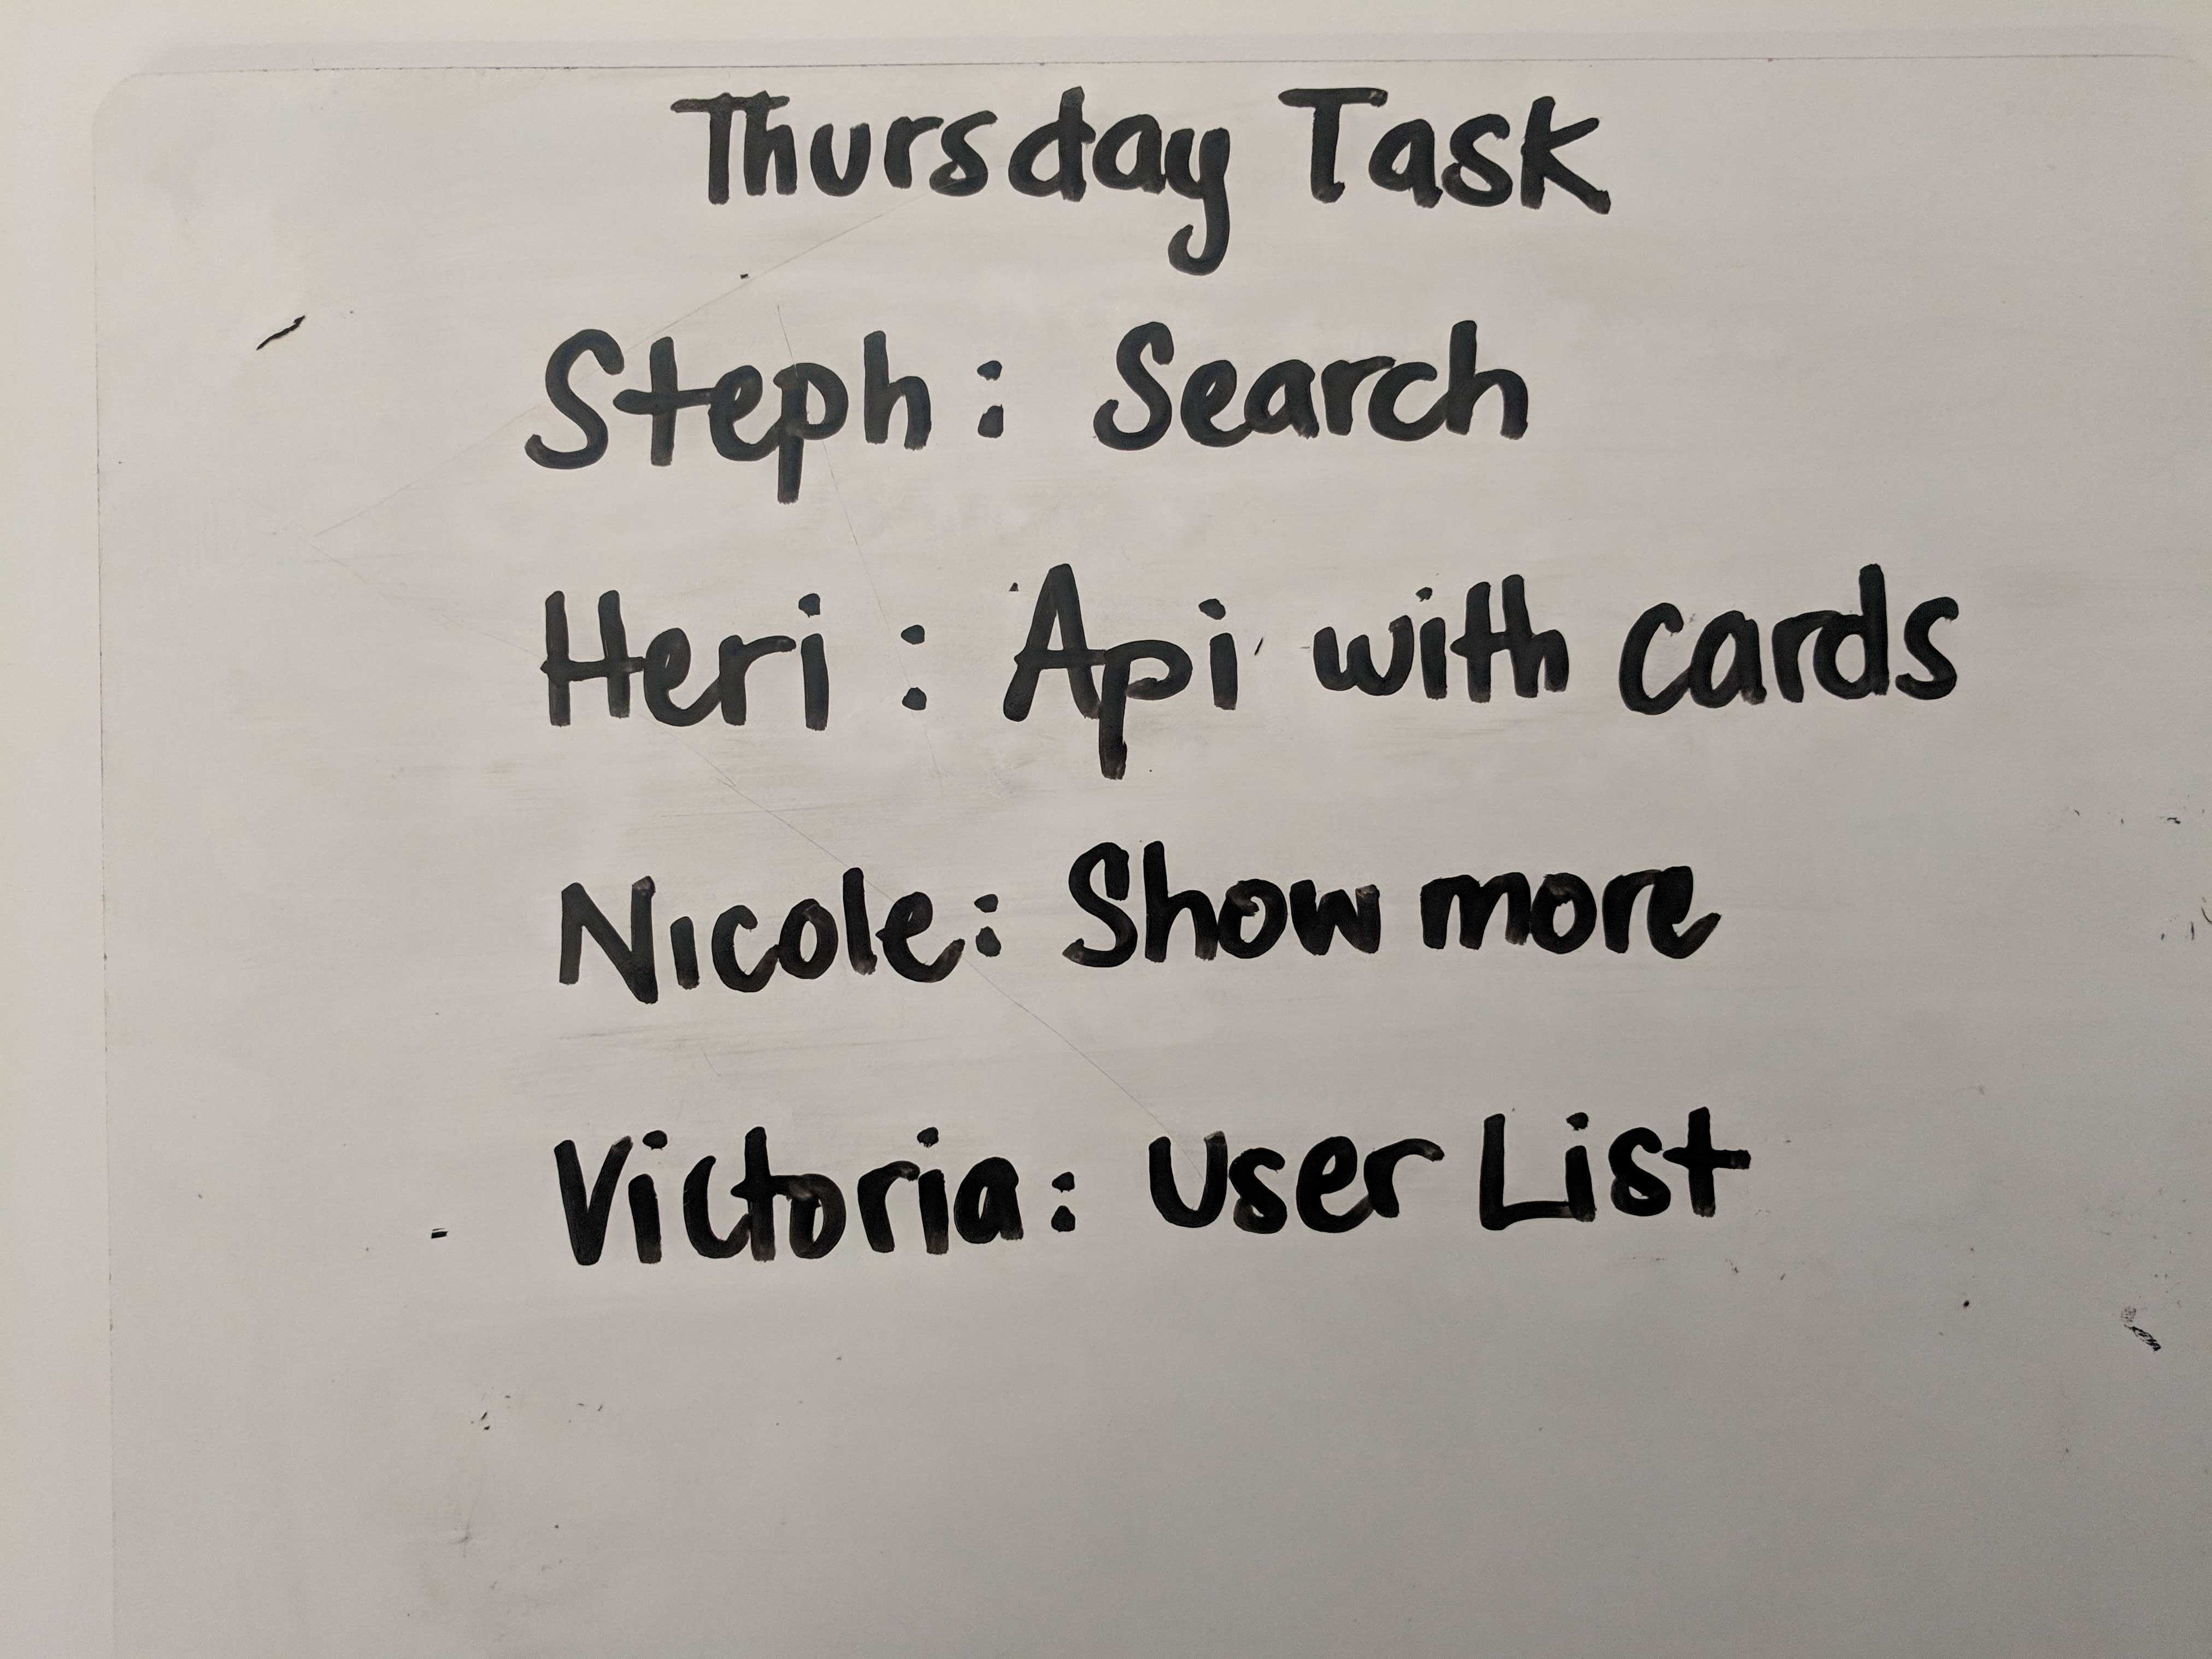 Thursday Task
Steph: Search
Heri: Api with cards
Nicole: Show more
Victoria: User List